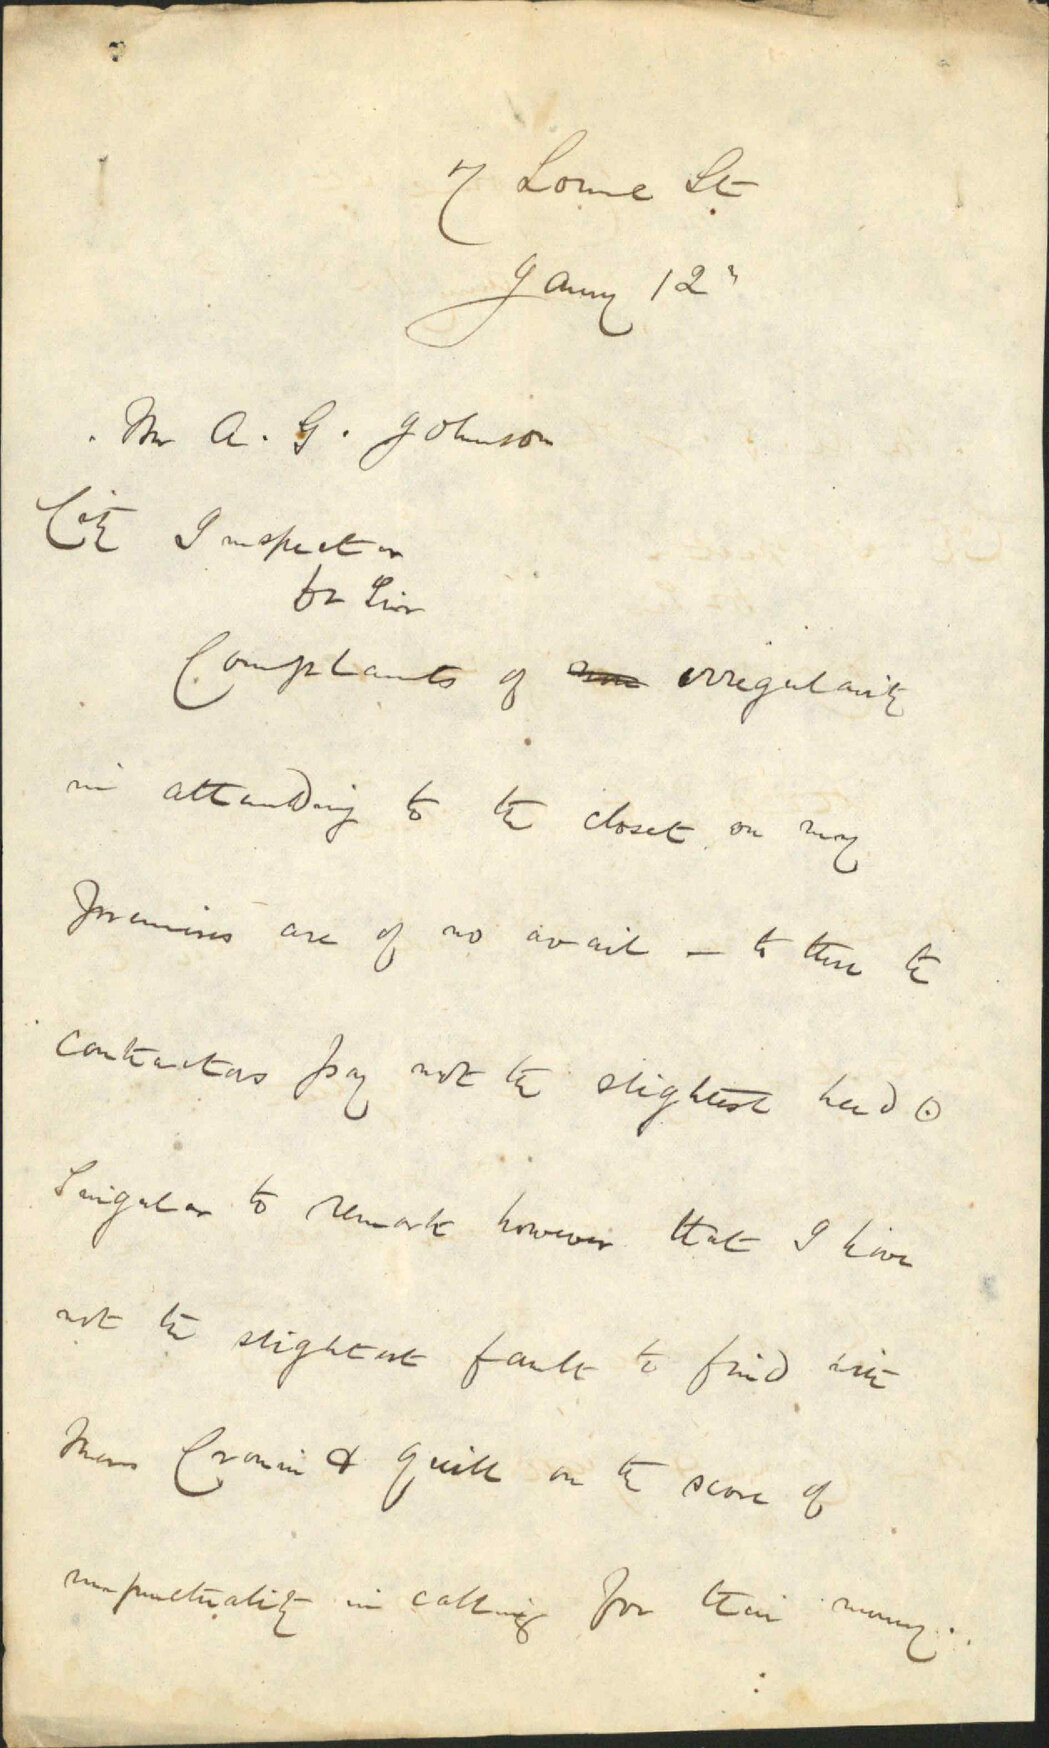 7 Lorne St
Jany 12"
Mr A. G. Johnson
City Inspector
Dr Sir
Complaints of irregularity
in attending to the closet on my
premises are of no avail — to these the
contractors pay not the slightest heed.
Singular to remark however that I have
not the slightest fault to find with
Messrs Cronin & Quill on the score of
unpunctuality in calling for their money..